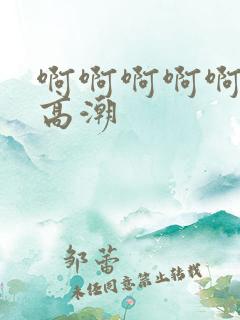 啊啊啊啊啊
高潮
邹蕾
未经同意禁止转载